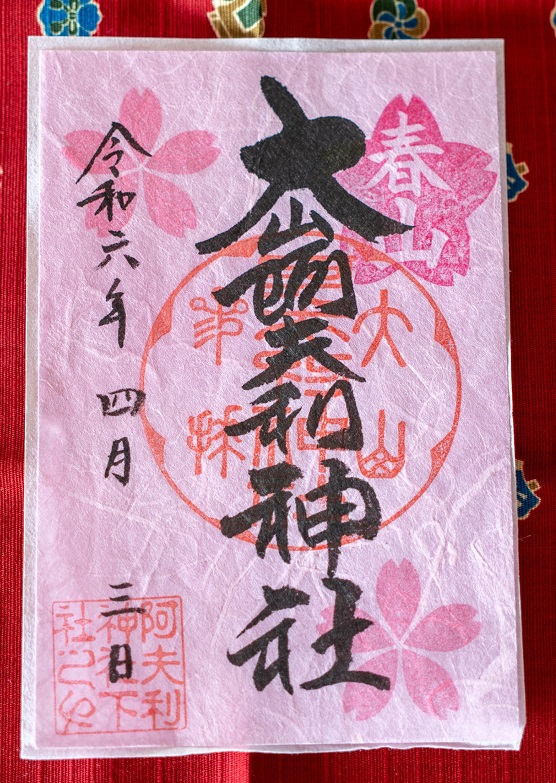 春山
大山阿夫利神社
令和六年 四月 三日
大山
阿夫利
神社下
社之印